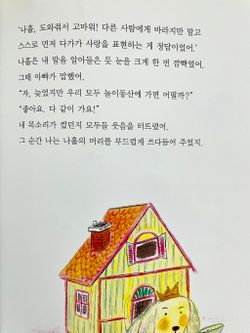 '나홀, 도와줘서 고마워! 다른 사람에게 바라지만 말고
스스로 먼저 다가가 사랑을 표현하는 게 정답이었어.'
나홀은 내 말을 알아들은 듯 눈을 크게 한 번 깜빡였어.
그때 아빠가 말했어.
"자, 늦었지만 우리 모두 놀이동산에 가면 어떨까?"
"좋아요. 다 같이 가요!"
내 목소리가 컸던지 모두들 웃음을 터뜨렸어.
그 순간 나는 나홀의 머리를 부드럽게 쓰다듬어 주었지.